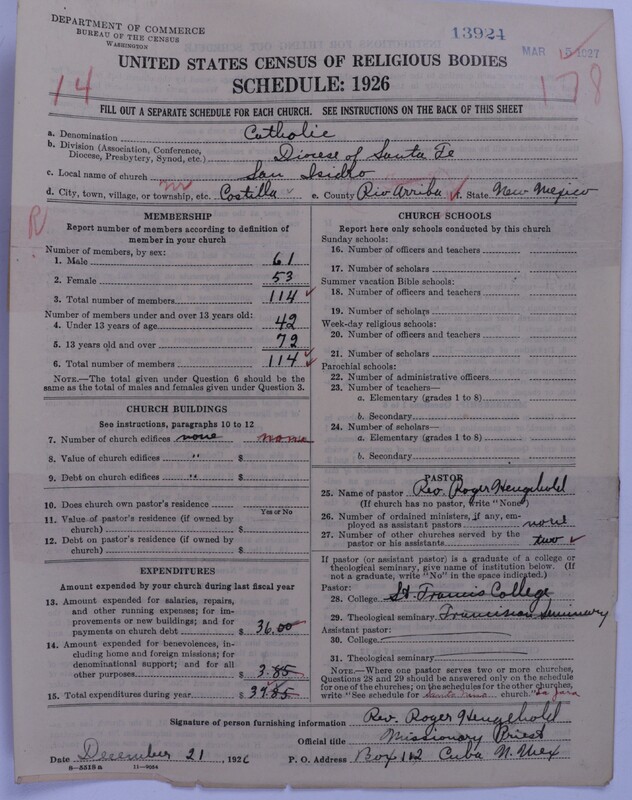 DEPARTMENT OF COMMERCE
BUREAU OF THE CENSUS
WASHINGTON
13924
MAR 15 1927
UNITED STATES CENSUS OF RELIGIOUS BODIES
SCHEDULE: 1926
14
178
FILL OUT A SEPARATE SCHEDULE FOR EACH CHURCH. SEE INSTRUCTIONS ON THE BACK OF THIS SHEET
a. Denomination Catholic
b. Division (Association, Conference, Diocese, Presbytery, Synod, etc.) Diocese of Santa Fe
c. Local name of church San Isidro
d. City, town, village, or township, etc. Costilla e. County Rio Arriba f. State New Mexico
R
MEMBERSHIP
Report number of members according to definition of
member in your church
Number of members, by sex:
1. Male 61
2. Female 53
3. Total number of members 114
Number of members under and over 13 years old:
4. Under 13 years of age 42
5. 13 years old and over 72
6. Total number of members 114
NOTE.—The total given under Question 6 should be the
same as the total of males and females given under Question 3.
CHURCH BUILDINGS
See instructions, paragraphs 10 to 12
7. Number of church edifices none none
8. Value of church edifices " $
9. Debt on church edifices " $
10. Does church own pastor's residence
Yes or No
11. Value of pastor's residence (if owned by
church) $
12. Debt on pastor's residence (if owned by
church) $
EXPENDITURES
Amount expended by your church during last fiscal year
13. Amount expended for salaries, repairs,
and other running expenses; for im-
provements or new buildings; and for
payments on church debt $ 36.00
14. Amount expended for benevolences, in-
cluding home and foreign missions; for
denominational support; and for all
other purposes $ 3.85
15. Total expenditures during year $ 39.85
CHURCH SCHOOLS
Report here only schools conducted by this church
Sunday schools:
16. Number of officers and teachers
17. Number of scholars
Summer vacation Bible schools:
18. Number of officers and teachers
19. Number of scholars
Week-day religious schools:
20. Number of officers and teachers
21. Number of scholars
Parochial schools:
22. Number of administrative officers
23. Number of teachers—
a. Elementary (grades 1 to 8)
b. Secondary
24. Number of scholars—
a. Elementary (grades 1 to 8)
b. Secondary
PASTOR
25. Name of pastor Rev. Roger Hengehold
(If church has no pastor, write "None")
26. Number of ordained ministers, if any, em-
ployed as assistant pastors none
27. Number of other churches served by the
pastor or his assistants two
If pastor (or assistant pastor) is a graduate of a college or
theological seminary, give name of institution below. (If
not a graduate, write "No" in the space indicated.)
Pastor:
28. College St. Francis College
29. Theological seminary Franciscan Seminary
Assistant pastor:
30. College
31. Theological seminary
NOTE.—Where one pastor serves two or more churches,
Questions 28 and 29 should be answered only on the schedule
for one of the churches; on the schedules for the other churches,
write "See schedule for church." La Jara
Signature of person furnishing information Rev. Roger Hengehold
Official title Missionary Priest
Date December 21, 1926 P. O. Address Box 112 Cuba N. Mex
8—5318 a 11—9034